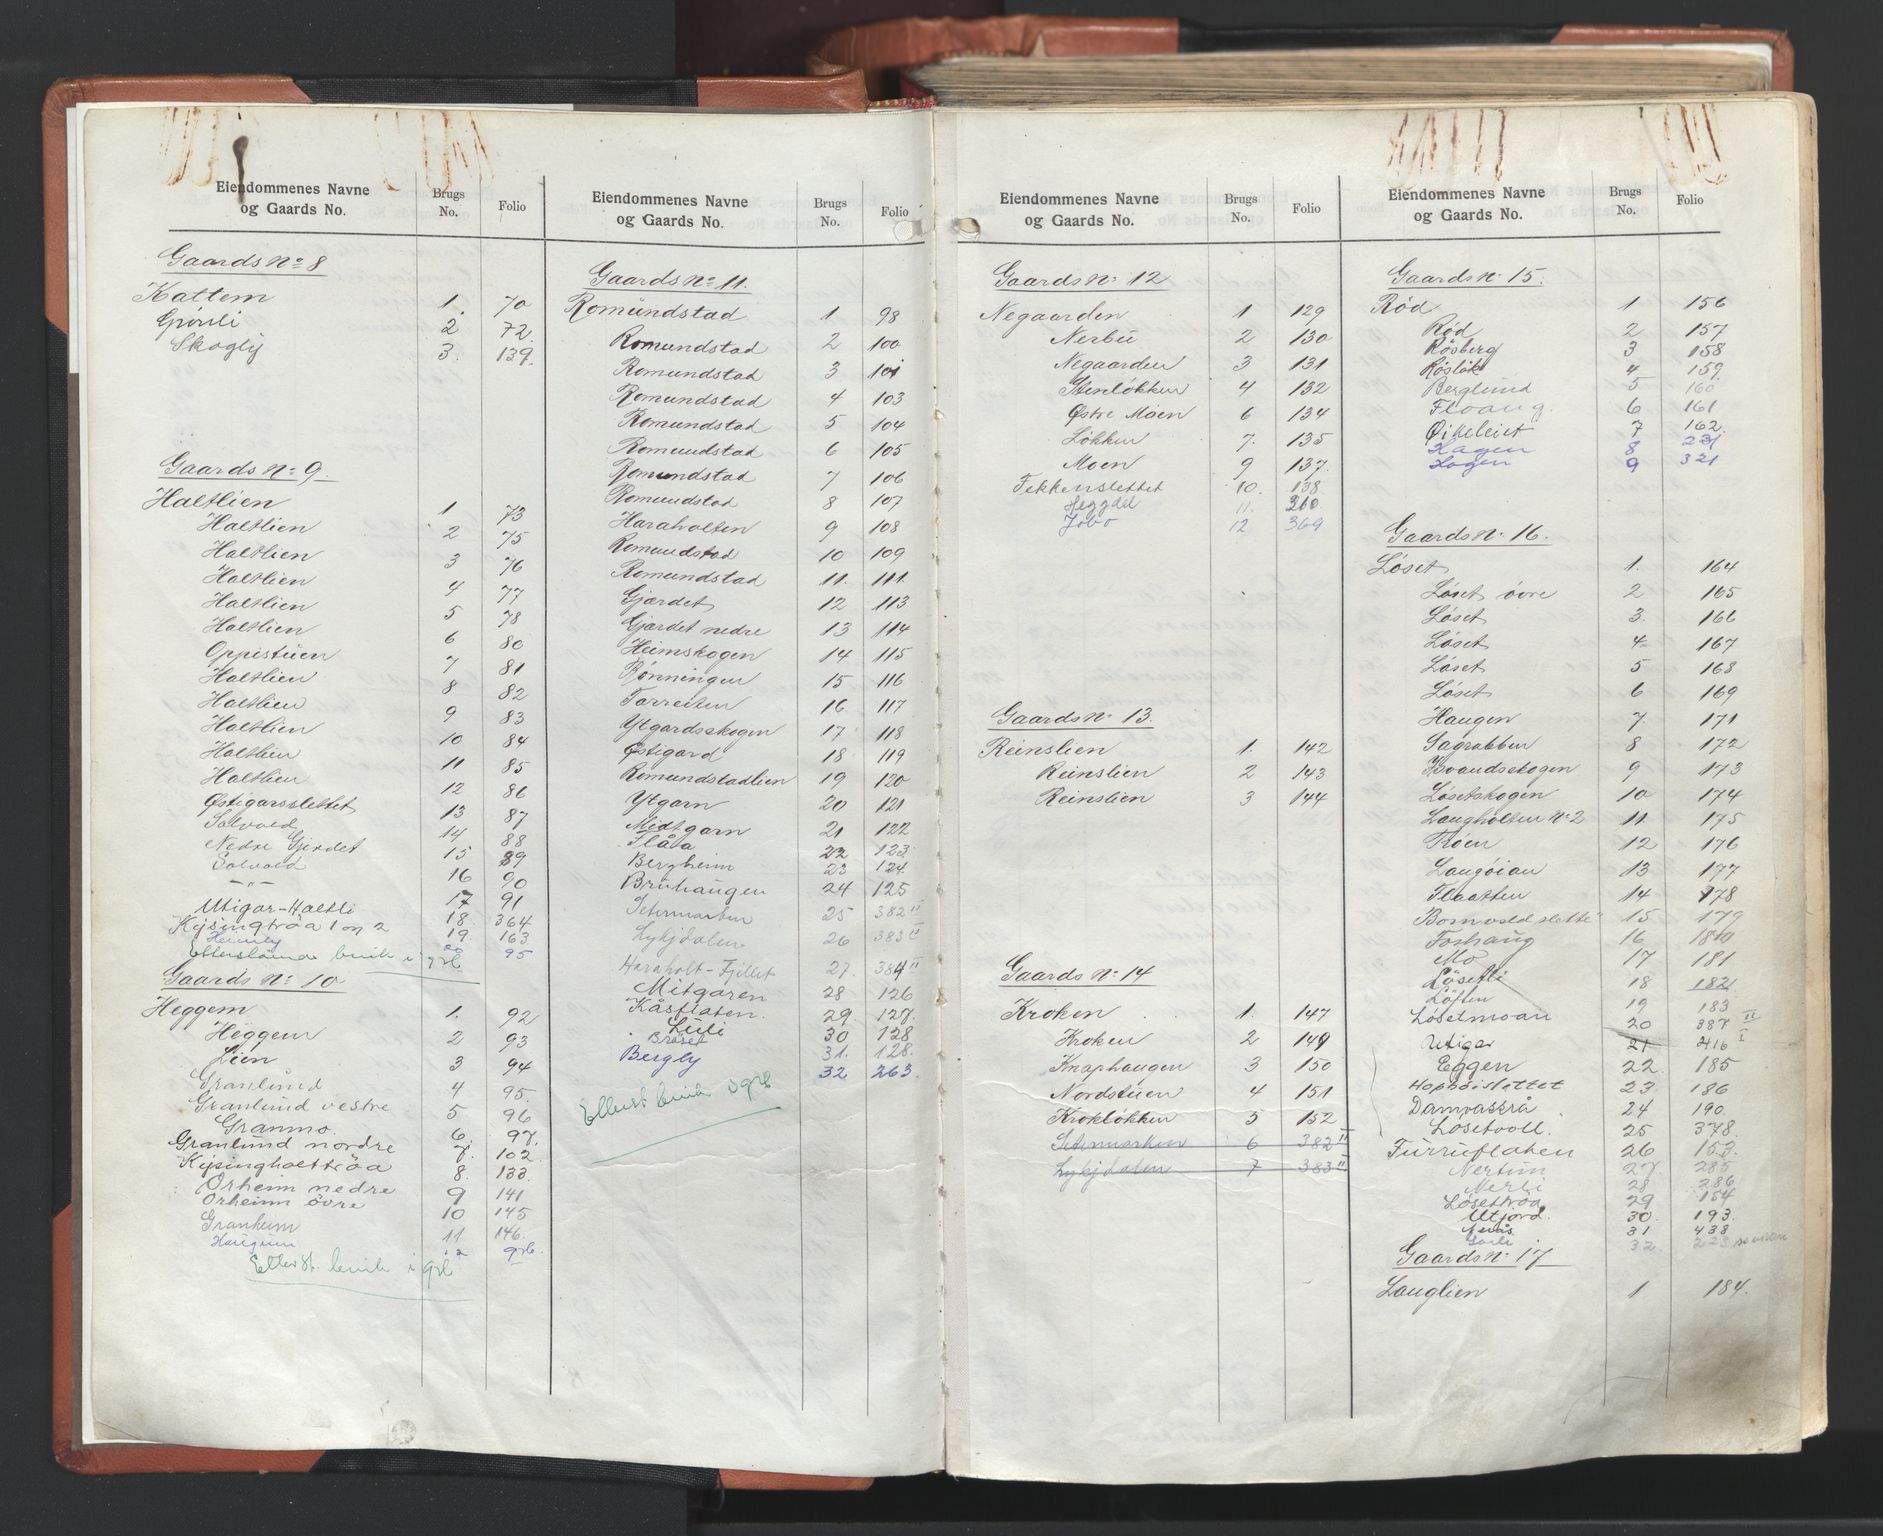 Eiendommenes Navne og Gaards No. Brugs No. Folio
Gaards No 8
Kattem 1. 70
Grönli 2 72.
Skogly 3. 139.
Gaards No 9.
Haltlien 1 73
Haltlien 2 75
Haltlien 3 76
Haltlien 4 77
Haltlien 5 78
Haltlien 6 80
Oppistuen 7 81
Haltlien 8 82
Haltlien 9 83
Haltlien 10 84
Haltlien 11 85
Haltlien 12 86
Østigarsslettet 13 87
Solvold 14 88
Nedre Gjerdet 15 89
Solvold 16 90
— " — 17 91
Utigar-Haltli 18 364
Kysingtröa 1 og 2 19. 163
Heimly 20 95
bruk i grb
Gaards No 10
Heggem 1. 92
Heggem 2 93
Lien 3 94
Granlund 4 95.
Granlund vestre 5 96
Granmo. 6. 97.
Granlund nordre 7. 102
Kysingholttröa 8. 133.
Orheim nedre 9 141
Orheim övre 10 145
Granheim 11 146.
Haugum 12 grb.
Etterst. bruk i grb
Eiendommenes Navne og Gaards No. Brugs No. Folio
Gaards No 11.
Romundstad 1 98
Romundstad 2 100
Romundstad 3 101
Romundstad 4 103
Romundstad 5 104
Romundstad 6 105
Romundstad 7 106
Romundstad 8 107
Haraholten 9 108
Romundstad 10 109
Romundstad 11. 111.
Gjærdet 12 113
Gjærdet nedre 13 114
Heimskogen 14 115
Rønningen 15 116
Torreiten 16 117
Ytgardsskogen 17 118
Østigard 18 119
Romundstadlien 19 120
Ytgarn 20 121
Midtgarn 21 122
Flåa 22 123
Bergheim 23 124.
Bruhaugen 24 125
Setermarken 25 382 II
Lykjdalen 26 383 II
Haraholt-Fjellet 27. 384 II
Mitgaren 28 126
Kåsflaten. 29. 127.
Luli 30 128
Bröset 31. 128.
Bergly 32 263.
Etterst bruk i grb
Eiendommenes Navne og Gaards No. Brugs No. Folio
Gaards No 12
Negaarden 1 129
Nerbu 2 130
Negaarden 3 131
Stenløkken 4 132
Østre Moen 6 134
Løkken 7. 135
Moen 9 137.
Fekkenslettet 10. 138
11. 310
Jobo 12 369
Gaards No 13.
Reinslien 1. 142
Reinslien 2 143
Reinslien 3 144
Gaards No 14
Kroken 1. 147
Kroken 2 149
Knaphaugen 3 150
Nordstuen 4 151
Krokløkken 5 152
Setermarken 6 382 II
Lykjdalen 7 383 II
Eiendommenes Navne og Gaards No. Brugs No. Folio
Gaards No 15.
Rød 1 156
Rød 2 157
Røsberg 3 158
Røsløk 4 159.
Berglund 5 160
Floaug. 6 161
Øikeleiet 7 162.
Hagen 8 231
Hogen 9 321
Gaards No 16.
Løset 1. 164
Løset övre 2 165
Løset 3. 166
Løset 4 167
Løset 5 168
Løset 6 169
Haugen 7. 171
Sagrabben 8 172
9 173
Løsetskogen 10 174
Laugholten No 2 11 175
Trøen 12 176
Laugøian 13 177
Flaatten 14 178
Bomvoldslette 15 179
Foshaug 16 180
Mo 17 181
Løsetli 18 182
Löften 19 183
Løsetmoan 20 387 II
Utigar 21 416 I
Eggen 22. 185
23. 186
Damvasstrå 24 190.
Løsetvoll. 25 378.
Furruflaten 26 153.
Nertun 27. 285
Nerli 28 286
Løsettröa 29 154
Utjord. 30. 193.
Nerås 31 438
32. 223
Gaards No 17
Lauglien 1 184.